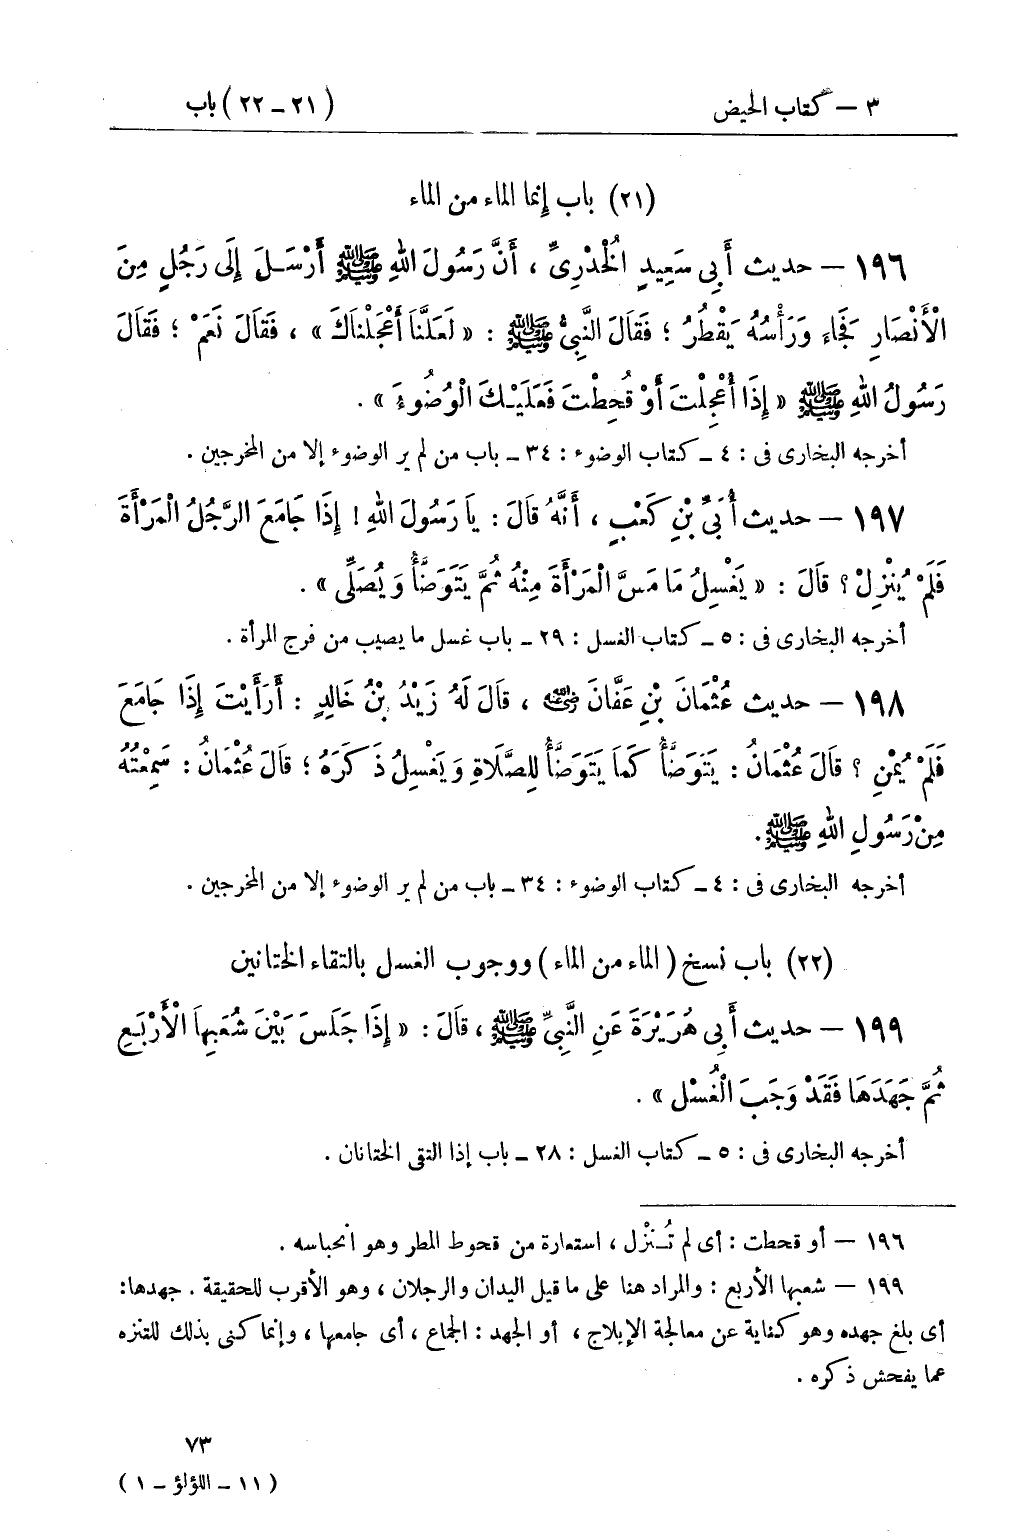 ٣ – كتاب الحيض
(٢١ – ٢٢) باب
(٢١) باب إنما الماء من الماء
١٩٦ – حديث أَبِى سَعِيدٍ الْخُدْرِىِّ ، أَنَّ رَسُولَ اللهِ ﷺ أَرْسَلَ إِلَى رَجُلٍ مِنَ
الْأَنْصَارِ فَجَاءَ وَرَأْسُهُ يَقْطُرُ ؛ فَقَالَ النَّبِىُّ ﷺ : « لَعَلَّنَا أَعْجَلْنَاكَ » ، فَقَالَ نَعَمْ ؛ فَقَالَ
رَسُولُ اللهِ ﷺ « إِذَا أُعْجِلْتَ أَوْ قُحِطْتَ فَعَلَيْكَ الْوُضُوءَ » .
أخرجه البخارى فى : ٤ – كتاب الوضوء : ٣٤ – باب من لم ير الوضوء إلا من المخرجين .
١٩٧ – حديث أُبَىِّ بْنِ كَعْبٍ ، أَنَّهُ قَالَ : يَا رَسُولَ اللهِ ! إِذَا جَامَعَ الرَّجُلُ الْمَرْأَةَ
فَلَمْ يُنْزِلْ ؟ قَالَ : « يَغْسِلُ مَا مَسَّ الْمَرْأَةَ مِنْهُ ثُمَّ يَتَوَضَّأُ وَيُصَلِّى » .
أخرجه البخارى فى : ٥ – كتاب الغسل : ٢٩ – باب غسل ما يصيب من فرج المرأة .
١٩٨ – حديث عُثْمَانَ بْنِ عَفَّانَ رضي الله عنه ، قَالَ لَهُ زَيْدُ بْنُ خَالِدٍ : أَرَأَيْتَ إِذَا جَامَعَ
فَلَمْ يُمْنِ ؟ قَالَ عُثْمَانُ : يَتَوَضَّأُ كَمَا يَتَوَضَّأُ لِلصَّلَاةِ وَيَغْسِلُ ذَكَرَهُ ؛ قَالَ عُثْمَانُ : سَمِعْتُهُ
مِنْ رَسُولِ اللهِ ﷺ .
أخرجه البخارى فى : ٤ – كتاب الوضوء : ٣٤ – باب من لم ير الوضوء إلا من المخرجين .
(٢٢) باب نسخ ( الماء من الماء ) ووجوب الغسل بالتقاء الختانين
١٩٩ – حديث أَبِى هُرَيْرَةَ عَنِ النَّبِىِّ ﷺ ، قَالَ : « إِذَا جَلَسَ بَيْنَ شُعَبِهَا الْأَرْبَعِ
ثُمَّ جَهَدَهَا فَقَدْ وَجَبَ الْغُسْلُ » .
أخرجه البخارى فى : ٥ – كتاب الغسل : ٢٨ – باب إذا التقى الختانان .
١٩٦ – أو قحطت : أى لم تُنْزِل ، استعارة من قحوط المطر وهو انحباسه .
١٩٩ – شعبها الأربع : والمراد هنا على ما قيل اليدان والرجلان ، وهو الأقرب للحقيقة . جهدها :
أى بلغ جهده وهو كناية عن معالجة الإيلاج ، أو الجهد : الجماع ، أى جامعها ، وإنما كنى بذلك للتنزه
عما يفحش ذكره .
٧٣
( ١١ – اللؤلؤ – ١ )